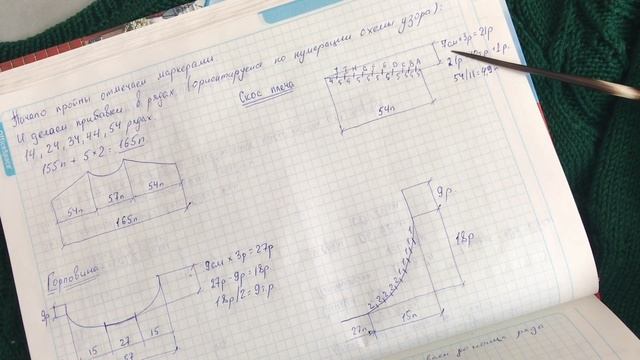 Начало проймы отмечаем маркерами
И делаем прибавки в рядах (ориентируемся по нумерации схемы узора):
14, 24, 34, 44, 54 рядах.
155п + 5×2 = 165п
54п 57п 54п
165п
Скос плеча
54п
7см × 3р = 21р
54/11 = 49п
Горловина
9см × 3р = 27р
27р - 9р = 18р
18р/2 = 9
9р
15 27 15
57
9р
18р
27п 15п